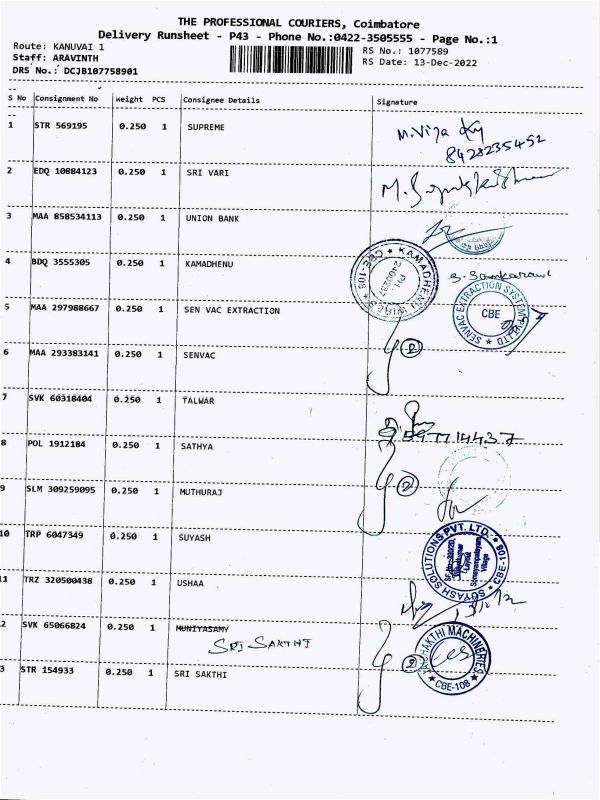 THE PROFESSIONAL COURIERS, Coimbatore
Delivery Runsheet - P43 - Phone No.:0422-3505555 - Page No.:1
Route: KANUVAI 1
RS No.: 1077589
Staff: ARAVINTH
RS Date: 13-Dec-2022
DRS No.: DCJB107758901
S No Consignment No Weight PCS Consignee Details Signature
1 STR 569195 0.250 1 SUPREME
M.Vija
8428235452
2 EDQ 10884123 0.250 1 SRI VARI
3 MAA 858534113 0.250 1 UNION BANK
4 BDQ 3555305 0.250 1 KAMADHENU
KAMADHENU WIRES ★ CBE-108 ★
PH
S. Sankaran
5 MAA 297988667 0.250 1 SEN VAC EXTRACTION
SENVAC EXTRACTION SYSTEM PVT LTD ★
CBE
6 MAA 293383141 0.250 1 SENVAC
2
7 SVK 60318404 0.250 1 TALWAR
8 POL 1912184 0.250 1 SATHYA
2
9 SLM 309259095 0.250 1 MUTHURAJ
10 TRP 6047349 0.250 1 SUYASH
SUYASH SOLUTIONS PVT. LTD. ★ CBE-108 ★
11 TRZ 320500438 0.250 1 USHAA
13/12/2
2 SVK 65066824 0.250 1 MUNIYASAMY
SRI SAKTHI
2
SAKTHI MACHINERIES
★ CBE-108 ★
3 STR 154933 0.250 1 SRI SAKTHI